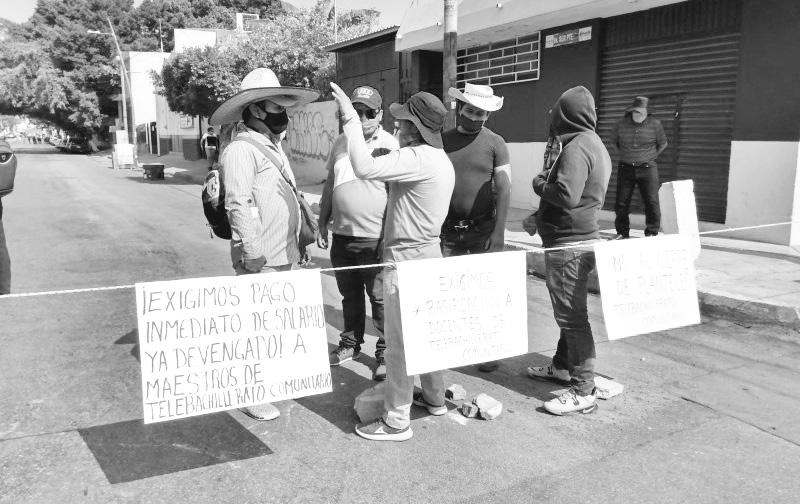 ¡EXIGIMOS PAGO
INMEDIATO DE SALARIO
YA DEVENGADO! A
MAESTROS DE
TELEBACHILLERATO COMUNITARIO
EXIGIMOS
RATIFICACION A
DOCENTES DE
TEBACHILLERATO
COMUNITARIO
NO AL CIERRE
DE PLANTELES
TELEBACHILLERATO
COMUNITARIO